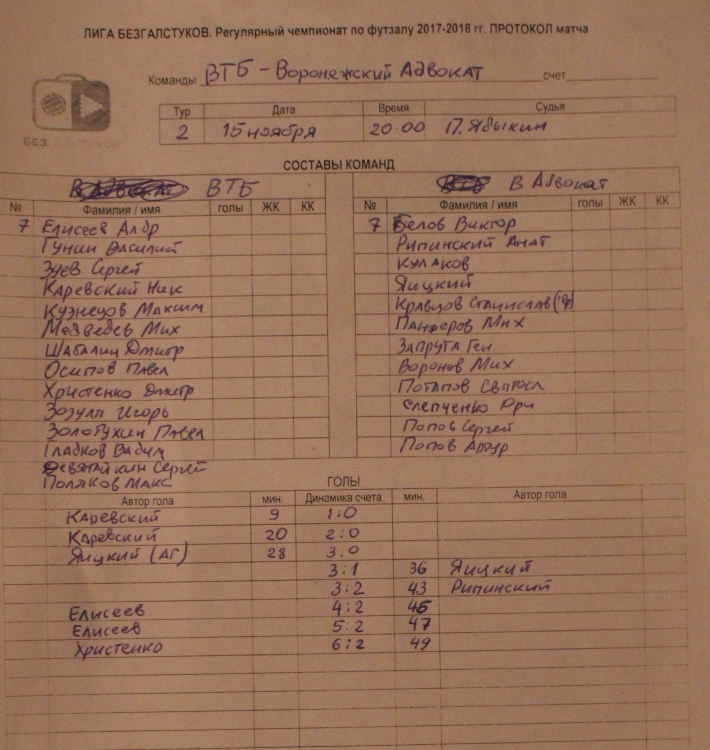 ЛИГА БЕЗГАЛСТУКОВ. Регулярный чемпионат по футзалу 2017-2018 гг. ПРОТОКОЛ матча
Команды ВТБ - Воронежский Адвокат счет
БЕЗ
Тур Дата Время Судья
2 15 ноября 20-00 П. Явыкин
СОСТАВЫ КОМАНД
ВТБ В. Адвокат
№ Фамилия / имя голы ЖК КК № Фамилия / имя голы ЖК КК
7 Елисеев Алдр 7 Белов Виктор
Гунин Василий Рипинский Анат
Зуев Сергей Кулаков
Каревский Ник Яицкий
Кузнецов Максим Кравцов Станислав
Медведев Мих Панферов Мих
Шабалин Дмитр Запруга Ген.
Осипов Павел Воронов Мих
Христенко Дмитр Потапов Святосл
Зозуля Игорь Слепченко Юри
Золотухин Павел Попов Сергей
Гладков Вадим Попов Артур
Девятайкин Сергей
Поляков Макс
ГОЛЫ
Автор гола мин. Динамика счета мин. Автор гола
Каревский 9 1:0
Каревский 20 2:0
Яицкий (АГ) 28 3:0
3:1 36 Яицкий
3:2 43 Рипинский
Елисеев 4:2 45
Елисеев 5:2 47
Христенко 6:2 49